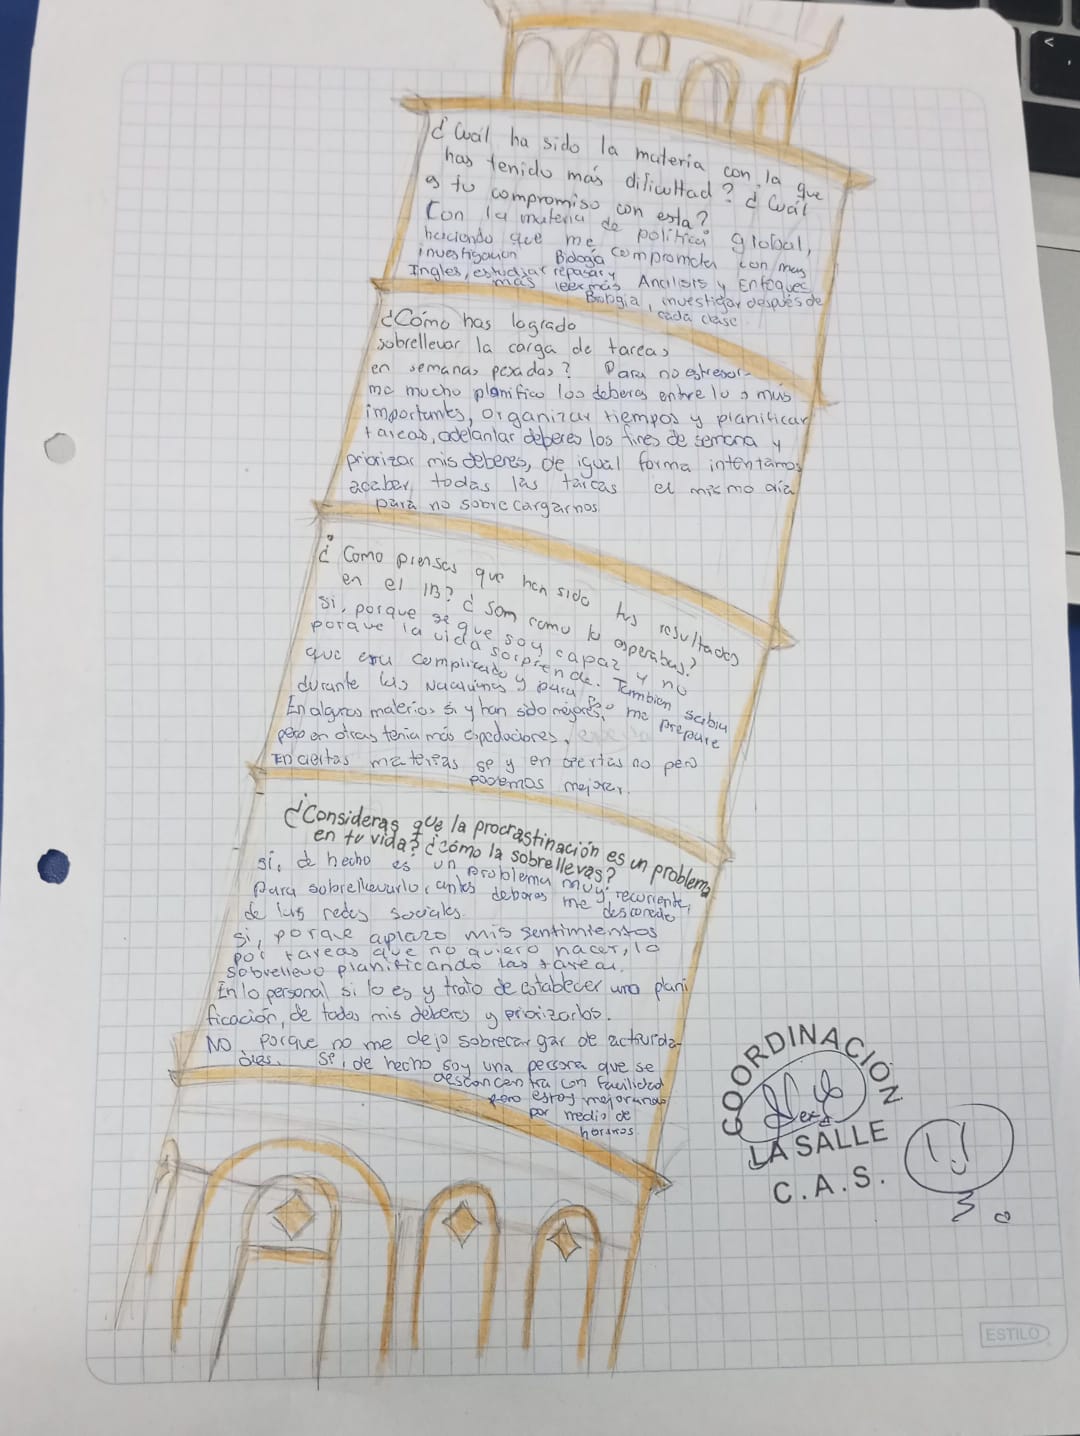 ¿Cuál ha sido la materia con la que
has tenido más dificultad? ¿Cuál
es tu compromiso con esta?
Con la materia de política global,
haciendo que me comprometa con mas
investigación Biología
Ingles, estudiar repasar y Analisis y Enfoques
más leer más
Biologia, investigar después de
cada clase
¿Cómo has logrado
sobrellevar la carga de tareas
en semanas pesadas? Para no estresar-
me mucho planifico los deberes entre lo s mas
importantes, organizar tiempos y planificar
tareas, adelantar deberes los fines de semana y
priorizar mis deberes, de igual forma intentamos
acabar todas las tareas el mismo día
para no sobrecargarnos
¿Como piensas que han sido tus resultados
en el IB? ¿Son como lo esperabas?
Si, porque se que soy capaz y no
porque la vida sorprende. Tambien sabia
que era complicado y para eso me prepare
durante las vacaciones
En algunas materias si y han sido mejores,
pero en otras tenia más expectaciones,
En ciertas materias si y en ciertas no pero
podemos mejorar.
¿Consideras que la procrastinación es un problema
en tu vida? ¿cómo la sobrellevas?
sí, de hecho es un problema muy recurriente,
para sobrellevarlo, antes deberes me desconecto
de las redes sociales.
Si, porque aplazo mis sentimientos
por tareas que no quiero hacer, lo
sobrellevo planificando las tareas.
En lo personal si lo es y trato de establecer una plani
ficación, de todos mis deberes y priorizarlos.
NO, Porque no me dejo sobrecargar de activida-
des. Si, de hecho soy una persona que se
desconcentra con facilidad
pero estoy mejorando
por medio de
horarios
COORDINACIÓN
LA SALLE
C.A.S.
ESTILO